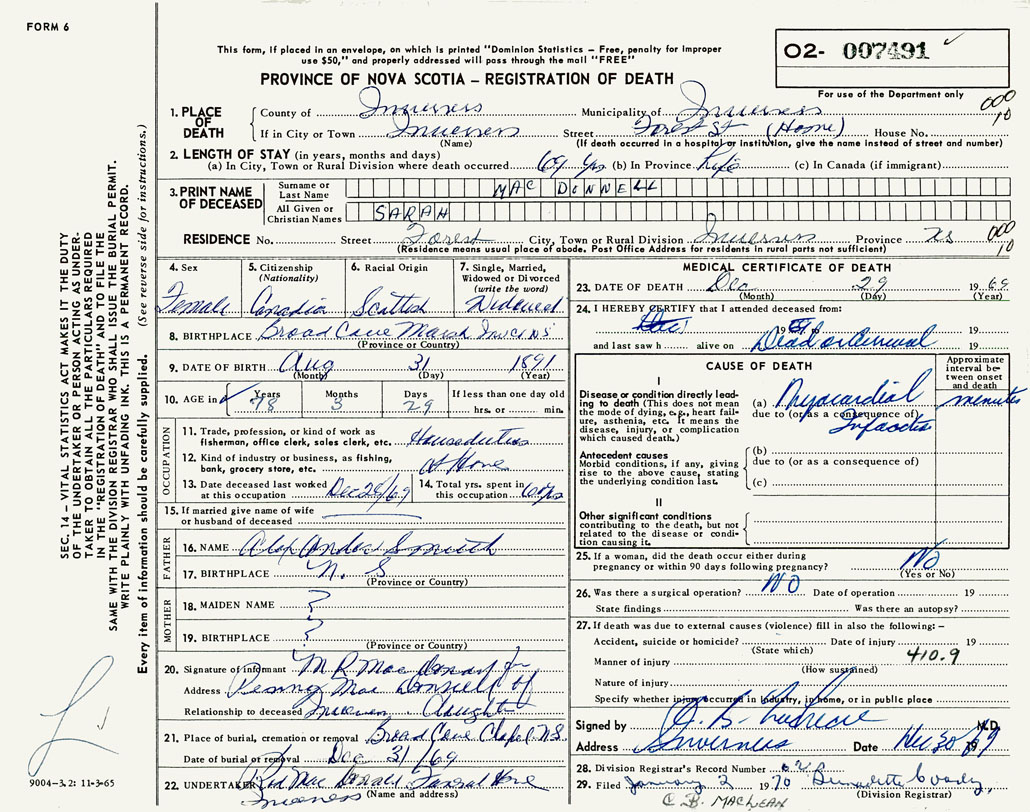 FORM 6
This form, if placed in an envelope, on which is printed "Dominion Statistics — Free, penalty for improper
use $50," and properly addressed will pass through the mail "FREE"
O2- 007491
For use of the Department only
PROVINCE OF NOVA SCOTIA — REGISTRATION OF DEATH
000
10
1. PLACE OF DEATH
County of Inverness Municipality of Inverness
If in City or Town Inverness Street Forest St (Home) House No.
(Name) (If death occurred in a hospital or institution, give the name instead of street and number)
2. LENGTH OF STAY (in years, months and days)
(a) In City, Town or Rural Division where death occurred 69 yrs (b) In Province Life (c) In Canada (if immigrant)
3. PRINT NAME OF DECEASED
Surname or Last Name MAC DONNELL
All Given or Christian Names SARAH
RESIDENCE No. Street Forest City, Town or Rural Division Inverness Province NS 000
10
(Residence means usual place of abode. Post Office Address for residents in rural parts not sufficient)
4. Sex
Female
5. Citizenship
(Nationality)
Canadian
6. Racial Origin
Scottish
7. Single, Married, Widowed or Divorced
(write the word)
Widowed
8. BIRTHPLACE Broad Cove Marsh Inv Co NS
(Province or Country)
9. DATE OF BIRTH Aug 31 1891
(Month) (Day) (Year)
10. AGE in Years Months Days If less than one day old
78 3 29 hrs. or min.
OCCUPATION
11. Trade, profession, or kind of work as
fisherman, office clerk, sales clerk, etc. Houseduties
12. Kind of industry or business, as fishing,
bank, grocery store, etc. at Home
13. Date deceased last worked
at this occupation Dec 29/69
14. Total yrs. spent in
this occupation 60 yrs
15. If married give name of wife
or husband of deceased
FATHER
16. NAME Alexander Smith
17. BIRTHPLACE N. S
(Province or Country)
MOTHER
18. MAIDEN NAME ?
19. BIRTHPLACE ?
(Province or Country)
20. Signature of informant
Address
Relationship to deceased Daughter
21. Place of burial, cremation or removal Broad Cove Chapel N.S.
Date of burial or removal Dec 31/69
22. UNDERTAKER Mac Donald Funeral Home
Inverness (Name and address)
MEDICAL CERTIFICATE OF DEATH
23. DATE OF DEATH Dec 29 1969
(Month) (Day) (Year)
24. I HEREBY CERTIFY that I attended deceased from:
19 19
and last saw h alive on Dead on arrival 19
CAUSE OF DEATH
Approximate interval between onset and death
I
Disease or condition directly leading to death (This does not mean
the mode of dying, e.g., heart failure, asthenia, etc. It means the
disease, injury, or complication
which caused death.)
(a) Myocardial minutes
due to (or as a consequence of)
Infarction
Antecedent causes
Morbid conditions, if any, giving
rise to the above cause, stating
the underlying condition last.
(b)
due to (or as a consequence of)
(c)
II
Other significant conditions
contributing to the death, but not
related to the disease or condition causing it.
25. If a woman, did the death occur either during
pregnancy or within 90 days following pregnancy? No
(Yes or No)
26. Was there a surgical operation? NO Date of operation 19
State findings Was there an autopsy?
27. If death was due to external causes (violence) fill in also the following: —
Accident, suicide or homicide? Date of injury 19
(State which)
410.9
Manner of injury
(How sustained)
Nature of injury
Specify whether injury occurred in industry, in home, or in public place
Signed by M.D.
Address Inverness Date Dec 30 1969
28. Division Registrar's Record Number
29. Filed January 2 1970 Bernadette
(Division Registrar)
C. B. MACLEAN
SEC. 14 — VITAL STATISTICS ACT MAKES IT THE DUTY
OF THE UNDERTAKER OR PERSON ACTING AS UNDER-
TAKER TO OBTAIN ALL THE PARTICULARS REQUIRED
IN THE "REGISTRATION OF DEATH" AND TO FILE THE
SAME WITH THE DIVISION REGISTRAR WHO SHALL ISSUE THE BURIAL PERMIT.
WRITE PLAINLY WITH UNFADING INK. THIS IS A PERMANENT RECORD.
Every item of information should be carefully supplied. (See reverse side for instructions.)
9004-3.2: 11-3-65